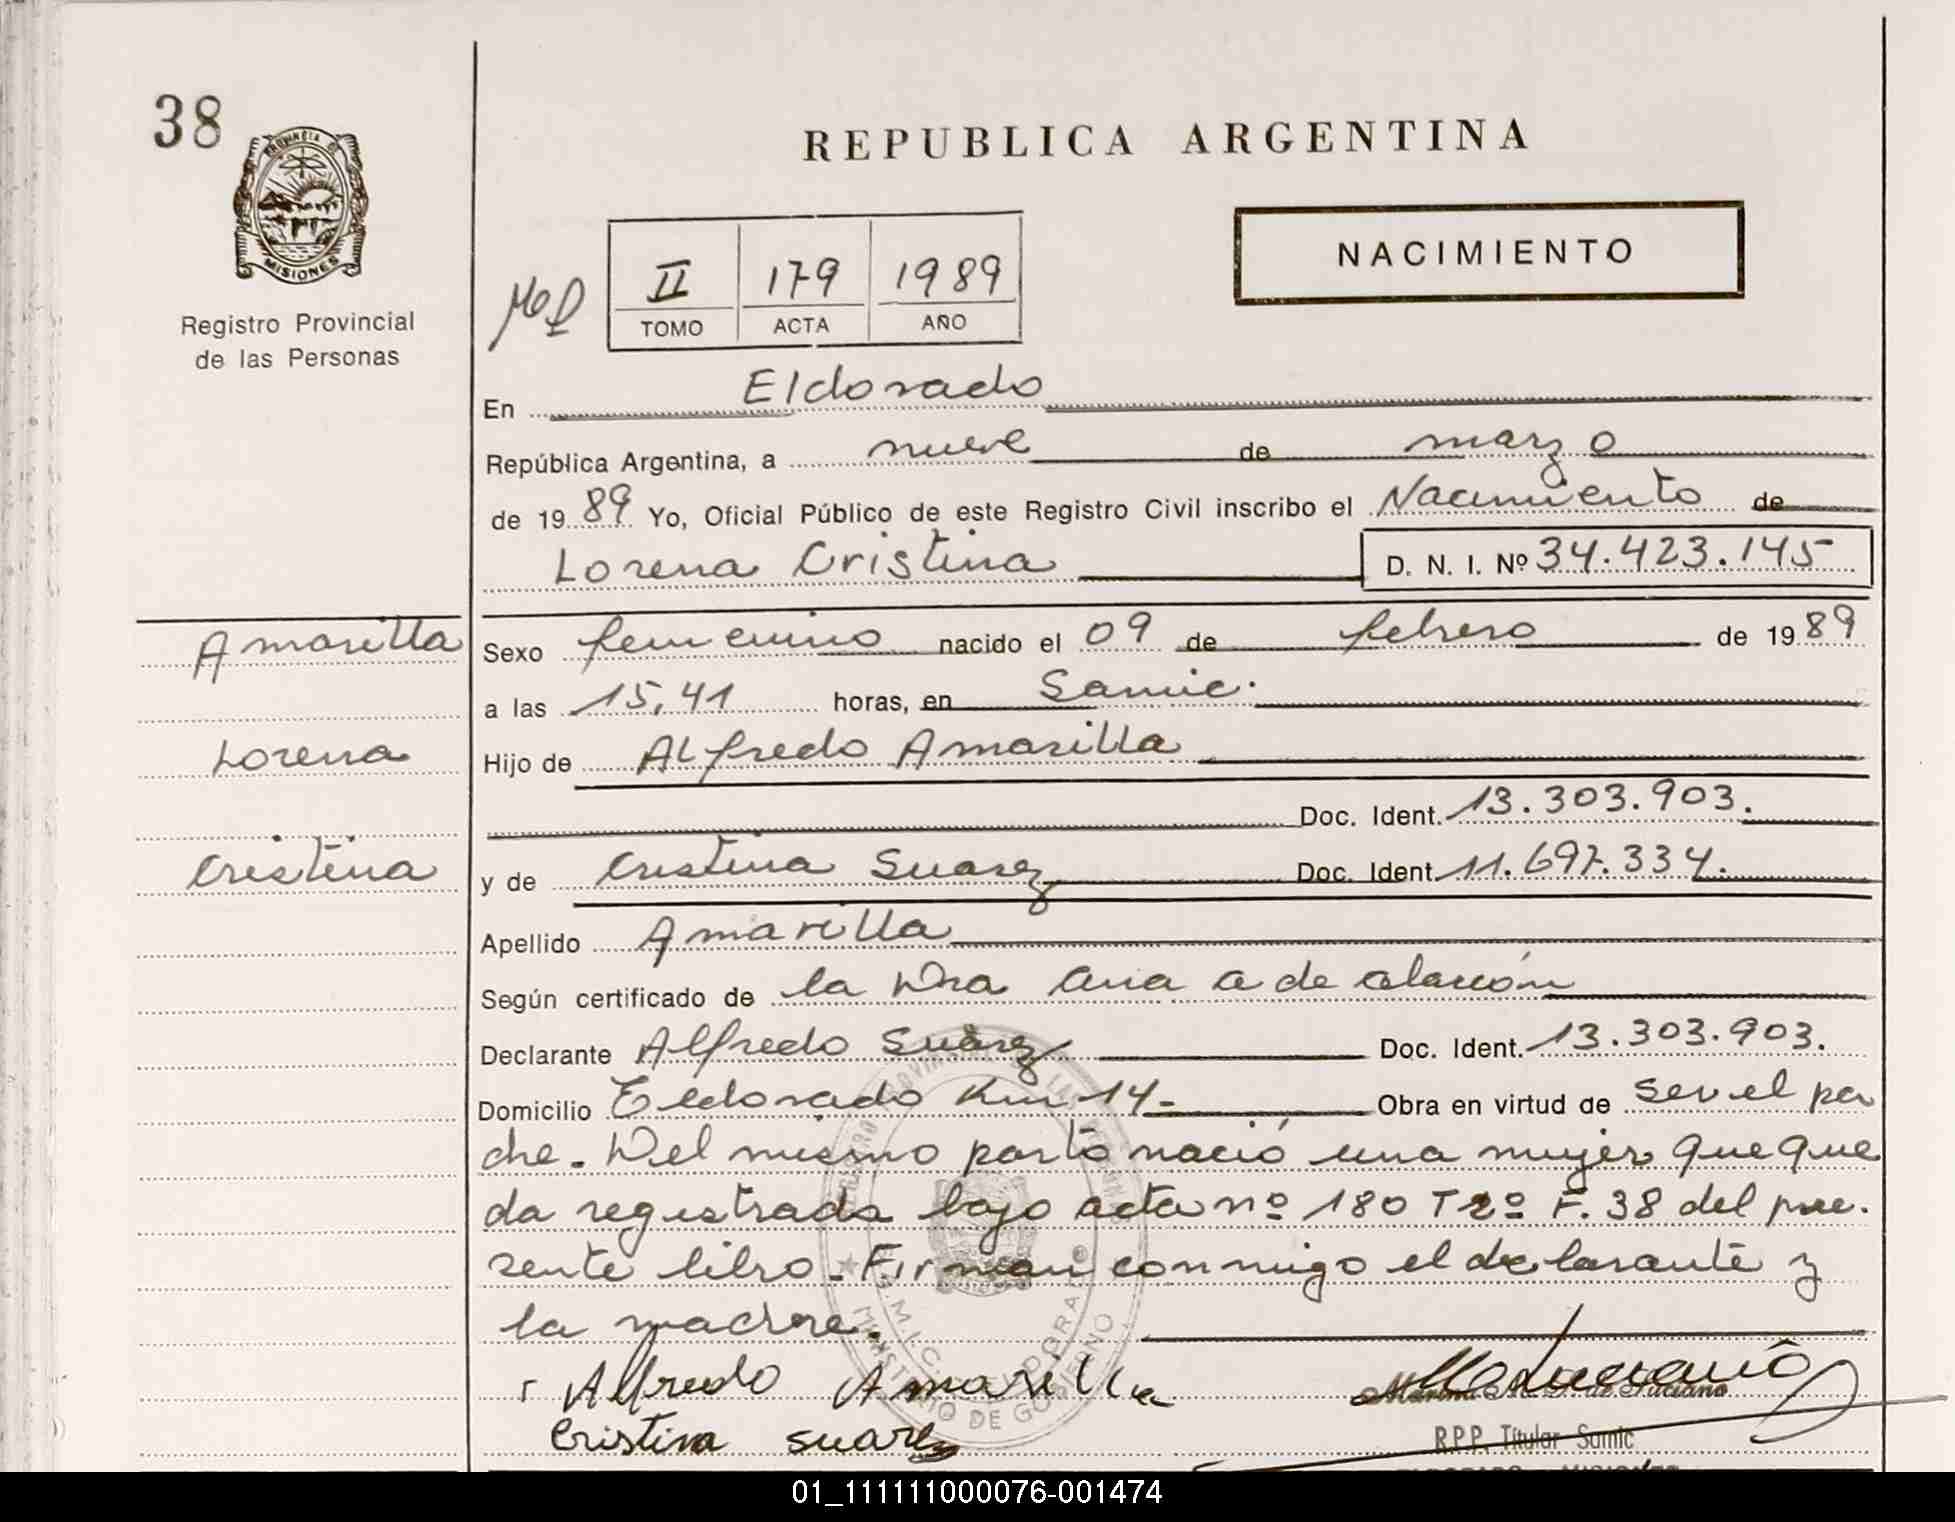 38
PROVINCIA DE
MISIONES
Registro Provincial
de las Personas
REPUBLICA ARGENTINA
NACIMIENTO
II 179 1989
TOMO ACTA AÑO
En Eldorado
República Argentina, a nueve de marzo
de 1989 Yo, Oficial Público de este Registro Civil inscribo el Nacimiento de
Lorena Cristina D. N. I. Nº 34.423.145
Amarilla
Lorena
Cristina
Sexo femenino nacido el 09 de febrero de 1989
a las 15,41 horas, en Samic.
Hijo de Alfredo Amarilla
Doc. Ident. 13.303.903.
y de Cristina Suarez Doc. Ident. 11.697.334.
Apellido Amarilla
Según certificado de la Dra Ana a de alarcón
Declarante Alfredo Suarez Doc. Ident. 13.303.903.
Domicilio Eldorado Km 14- Obra en virtud de ser el pa
dre. Del mismo parto nació una mujer que que
da registrada bajo acta nº 180 T2º F. 38 del pre-
sente libro. Firman conmigo el declarante y
la madre.
Alfredo Amarilla
Cristina Suarez
MINISTERIO DE GOBIERNO
R.P.P. Titular Samic
ELDORADO - MISIONES
01_111111000076-001474